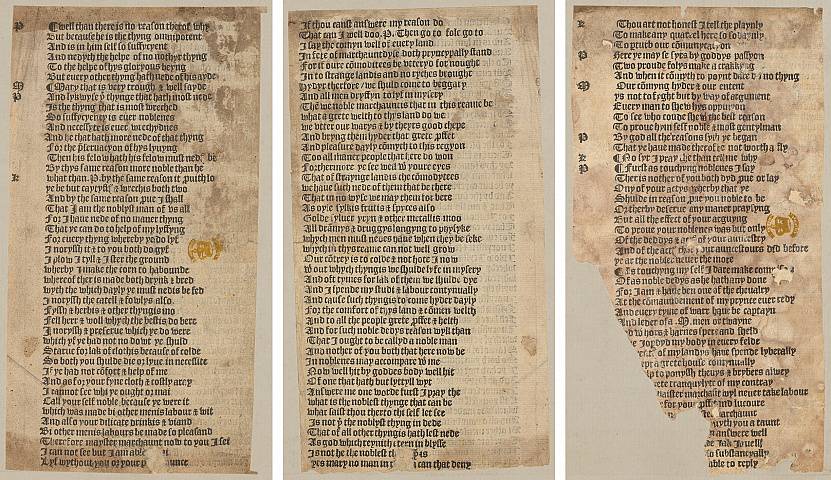 P Cwell than there is no reason therof why
But because he is the thyng omnipotent
And is in him self so suffycyent
And nedyth the helpe of no nother thyng
To the helpe of hys gloryous beyng
But euery other thyng hath nede of his ayde
M Mary that is very trough & well sayde
P And lykwyse yͤ thynge that hath most nede
Is the thyng that is most wreched
So suffysency is euer noblenes
And necessyte is euer wrechydnes
And he that hath more nede of that thyng
For the preseruacyon of hys lyuyng
Then his felow hath his felow must ned be
By thys same reason more noble than he
K what than. P. by the same reason it puith to
ye be but caytyfs & wrechis both two
And by the same reason proue I shall
That I am the noblyst man of vs all
For I haue nede of no maner thyng
That ye can do to help of my lyffyng
For euery thyng whereby ye do lyf
I noryssh it & to you both do gyf
I plow I tyll & I ster the ground
wherby I make the corn to habounde
wherof ther is made both drynk & bred
wyth the which dayly ye must nedis be fed
I noryssh the catell & fowlys also
Fyssh & herbis & other thyngis mo
Fell her & woll whych the bestis do bere
I noryssh & preserue which ye do were
which yf ye had not no dowt ye shuld
Starue for lak of clothis because of colde
So both you shulde die or lyue in necessite
If ye had not cōfort & help of me
And as for your fyne cloth & costly aray
I cannot see why ye ought or mai
Call your self noble because ye were it
which was made bi other menis labour & wit
And also your dilicate drinkis & viand
Bi other menis labours be made so plesand
Therfore mayster marchaunt now to you I sei
I can not see but I am able
Lyf wythout you or your aunce
If thou canst answere my reason do
That can I well doo. P. Then go to folc go to
I say the comyn well of euery land
In fete of marchaundyse doth pryncypally stand
For if oure cōmodites be vtteryd for nought
In to strange landis and no ryches brought
hyder therfore we shuld come to beggary
And all men dryffyn to lyf in mysery
The we noble marchauntis that in this reame be
what a grete welth to thys land do we
we vtter our warys & by theyrs good chepe
And bryng them hyder that grete proffet
And pleasure dayly cōmyth to this regyon
Too all maner people that here do won
Forthermore ye see well wͭ youre eyes
That of straynge landis the cōmodytees
we haue such nede of them that be there
That in no wyse we may them for bere
As oyle sylkis frutis & spyces also
Golde syluer yryn & other metallis moo
All drammys & druggys longyng to phisyke
whych men must nedys haue when they be seke
whych in thys reame can not well grow
Our cōtrey is to colde & not hote I now
wͭ out whych thyngis we shulde lyfe in mysery
And oft tymes for lak of them we shulde dye
And I spende my study & labour contynually
And cause such thyngis to come hyder dayly
For the comfort of thys land & cōmen welth
And to all the people grete proffet & helth
And for such noble dedys reason wyll than
That I ought to be callyd a noble man
And nother of you both that here now be
In noblenes may accompare wͭ me
Now well hit by goddes body well hit
Of one that hath but lytyll wyt
Answere me one worde furst I pray the
what is the noblest thynge that can be
what saist thou therto thi self let see
Is not yͤ the noblyst thyng in dede
That of all other thyngis hath lest nede
As god which reynith etern in blysse
Is not he the noblest thyng is
yes mary no man in can that deny
K Thou art not honest I tell the playnly
To make any quarel here so sodaynly
To pturb our cōmunycacyon
P Here ye may se syrs by goddys passyon
Two proude folys make a crakkyng
And when it cōmyth to poynt dare do no thyng
M Our cōmyng hyder & our entent
ys not to fyght but by way of argument
Euery man to shew hys opynyon
To see who coude shew the best reason
To proue hym self noble & most gentylman
P By god all the reasons syth ye began
That ye haue made therof he not worth a fly
K No syr I pray the than tell me why
P Furst as touchyng noblenes I say
Ther is nother of you both dyd prue or lay
Ony of your actys wherby that ye
Shulde in reason proue you noble to be
Or therby deserue any maner praysyng
But all the effect of your arguyng
To proue your noblenes was but only
Of the dedys & act of your auncestry
And of the actis that your auncestours dyd before
ye ar the nobler neuer the more
K As touchyng my self I dare make comparison
Of as noble dedys as he hath any done
For I am & haue ben one of the cheualry
At the cōmaundement of my prynce euer redy
And euery tyme of ware haue be captayn
And leder of a .M. men or twayne
wͭ hors & harnes spere and sheld
Iopdyd my body in euery felde
of my landys haue I spende lyberally
grete house contynually
to ponyssh theuys & brybers alwey
grete tranquylyte of my contray
maister marchaunt wyl neuer take labour
for your proffet and lucoure
marchaunt
myth you a taunt
answere well

so substancyally
able to reply